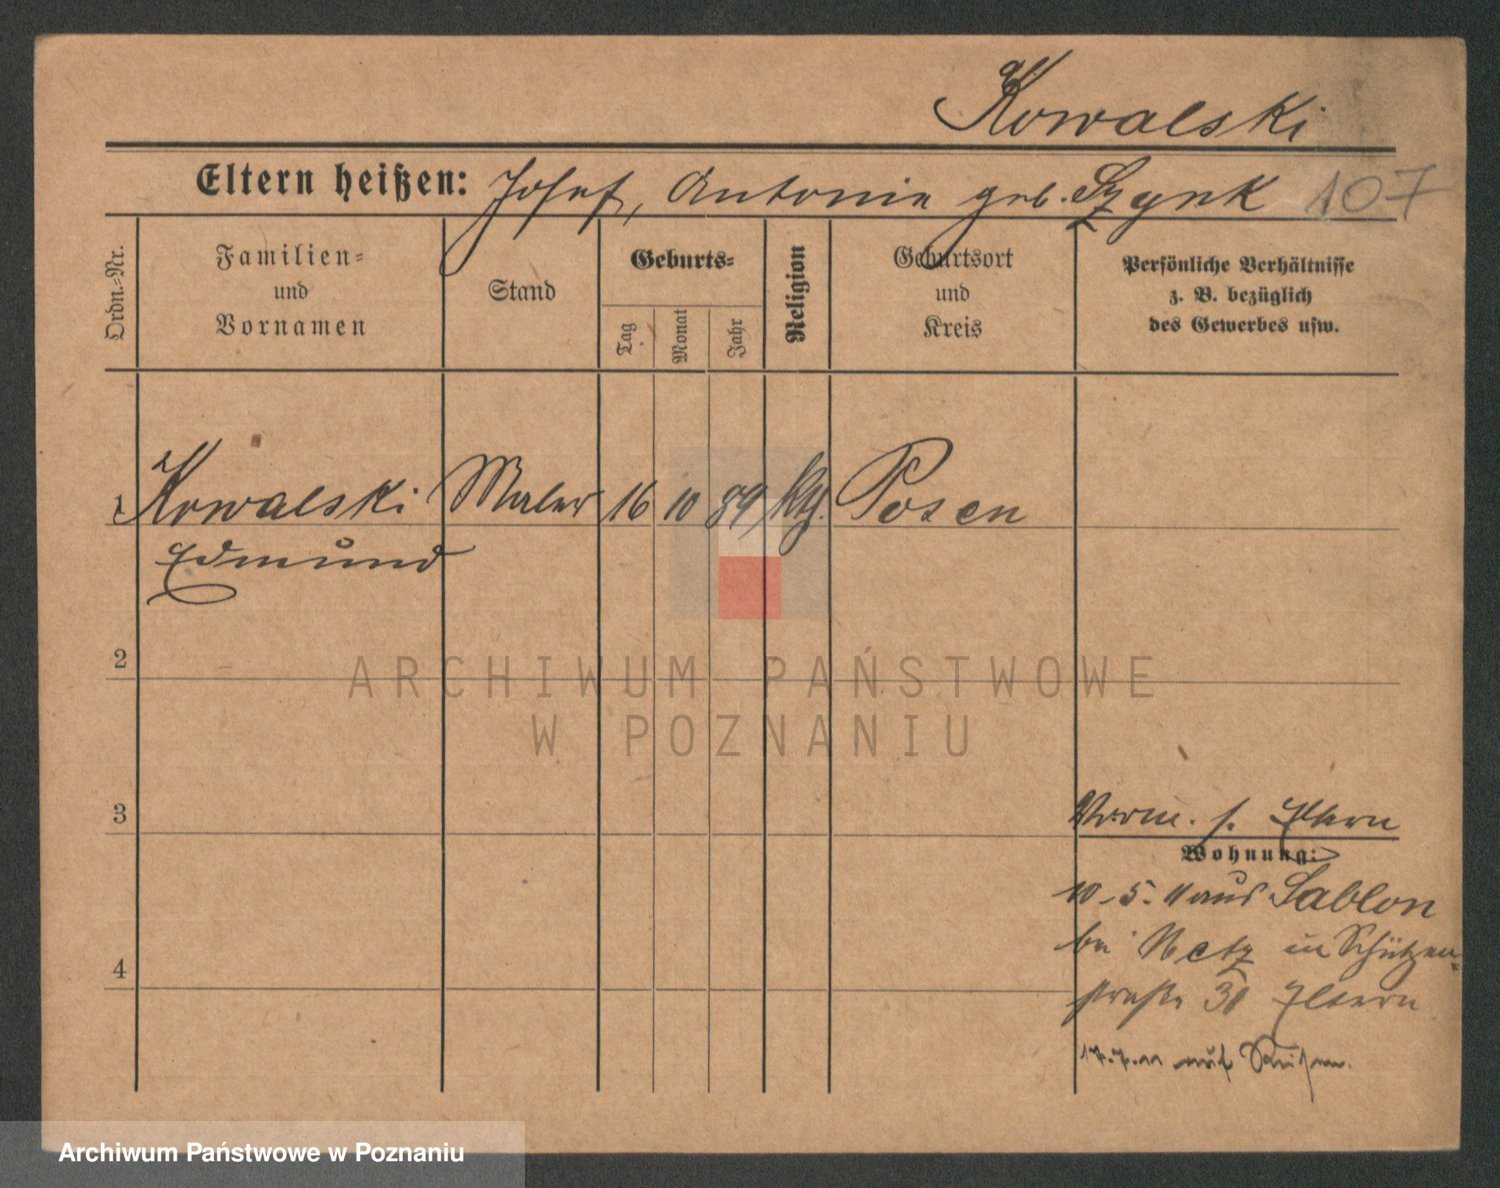 Kowalski
Eltern heißen: Josef, Antonie geb. Szynk 107
Ordn.-Nr.
Familien-
und
Vornamen
Stand
Geburts-
Tag
Monat
Jahr
Religion
Geburtsort
und
Kreis
Persönliche Verhältnisse
z. B. bezüglich
des Gewerbes usw.
1 Kowalski Maler 16 10 89 kth. Posen
Edmund
2
3
4
Vorm. s. Eltern
Wohnung:
10.5.11 aus Sablon
bei Metz in Schützen-
straße 31 Eltern
17.7.11 auf
ARCHIWUM PAŃSTWOWE
W POZNANIU
Archiwum Państwowe w Poznaniu